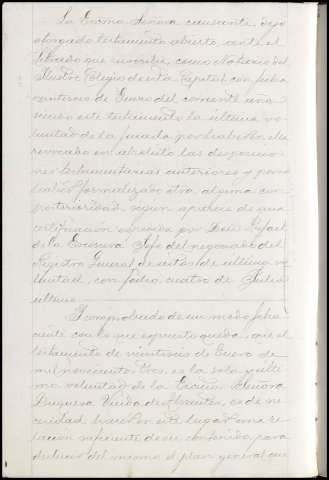 La Excma Señora causante, dejó
otorgado testamento abierto ante el
letrado que suscribe, como Notario del
Ilustre Colegio de esta Capital con fecha
veintiseis de Enero del corriente año
siendo este testamento la última vo-
luntad de la finada por haber ella
revocado en absoluto las disposicio-
nes testamentarias anteriores y por no
haber formalizado otra alguna con
posterioridad, segun aparece de una
certificacion expedida por Don Rafael
de la Escosura Jefe del negociado del
Registro General de actos de última vo-
luntad, con fecha cuatro de Julio
último.
Y comprobado de un modo feha-
ciente con lo que expuesto queda, que el
testamento de veintiseis de Enero de
mil novecientos tres, es la sola y últi-
ma voluntad de la Excma Señora
Duquesa Viuda de Abrantes, es de ne-
cesidad hacer en este lugar una re-
lacion suficiente de su contenido, para
deducir del mismo el plan general que